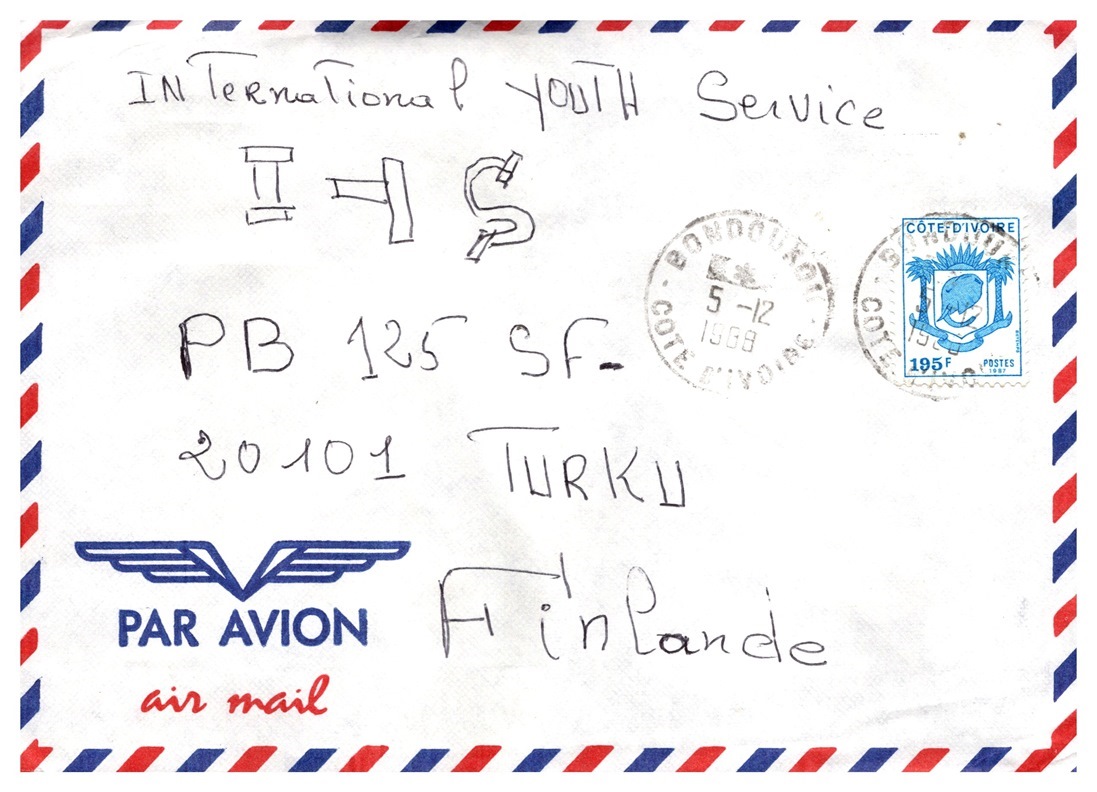 INTernaTional YOUTH Service
I Y S
PB 125 SF-
20101 TURKU
Finlande
BONDOUKOU
5 -12
1988
COTE D'IVOIRE
CÔTE-D'IVOIRE
195F
POSTES
1987
PAR AVION
air mail